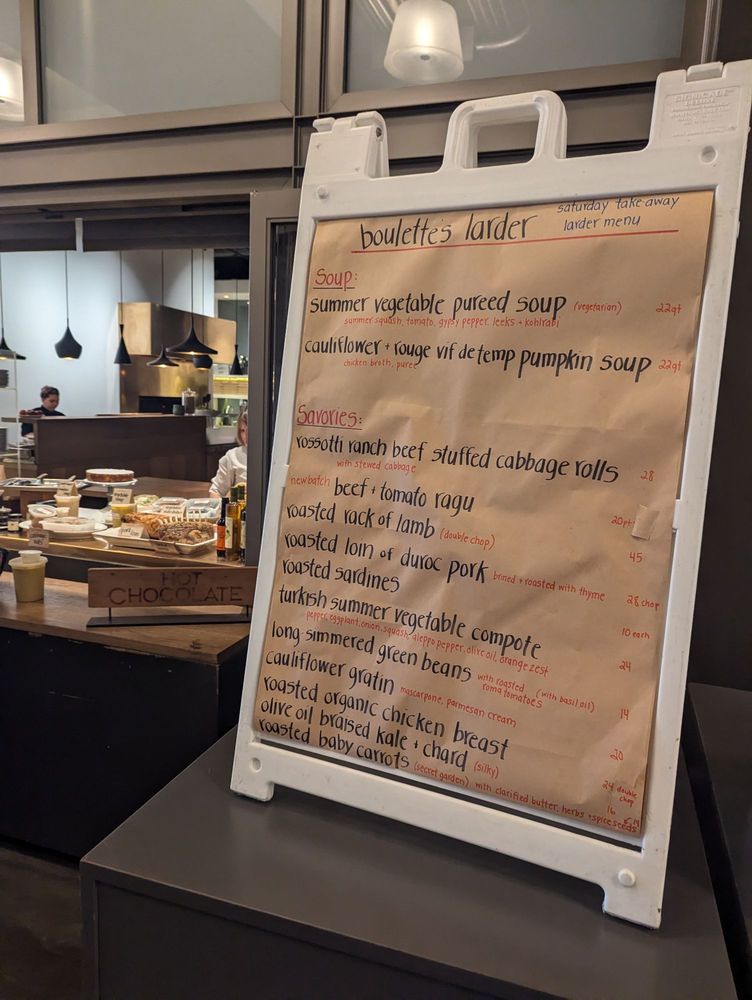 boulette's larder
saturday take away
larder menu
Soup:
summer vegetable pureed soup (vegetarian) 22qt
summer squash, tomato, gypsy pepper, leeks + kohlrabi
cauliflower + rouge vif de temp pumpkin soup 22qt
chicken broth, puree
Savories:
rossotti ranch beef stuffed cabbage rolls 28
with stewed cabbage
new batch beef + tomato ragu 20pt
roasted rack of lamb (double chop) 45
roasted loin of duroc pork brined + roasted with thyme 28 chop
roasted sardines 10 each
turkish summer vegetable compote 24
pepper, eggplant, onion, squash, aleppo pepper, olive oil, orange zest
long-simmered green beans with roasted roma tomatoes (with basil oil) 14
cauliflower gratin mascarpone, parmesan cream, 20
roasted organic chicken breast 24 double chop
olive oil braised kale + chard (silky) 16
roasted baby carrots (secret garden) with clarified butter, herbs + spice seeds
HOT
CHOCOLATE